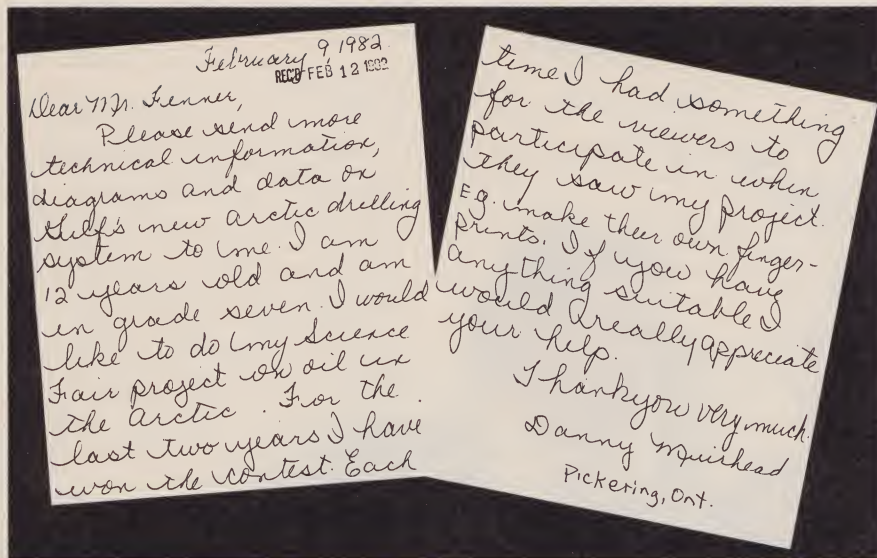 February 9, 1982
REC'D FEB 12 1982
Dear Mr. Fenner,
Please send more
technical information,
diagrams and data on
Gulf's new arctic drilling
system to me. I am
12 years old and am
in grade seven. I would
like to do my Science
Fair project on oil in
the arctic. For the
last two years I have
won the contest. Each
time I had something
for the viewers to
participate in when
they saw my project.
E.g. make their own finger-
prints. If you have
anything suitable I
would really appreciate
your help.
Thankyou very much.
Danny Muirhead
Pickering, Ont.